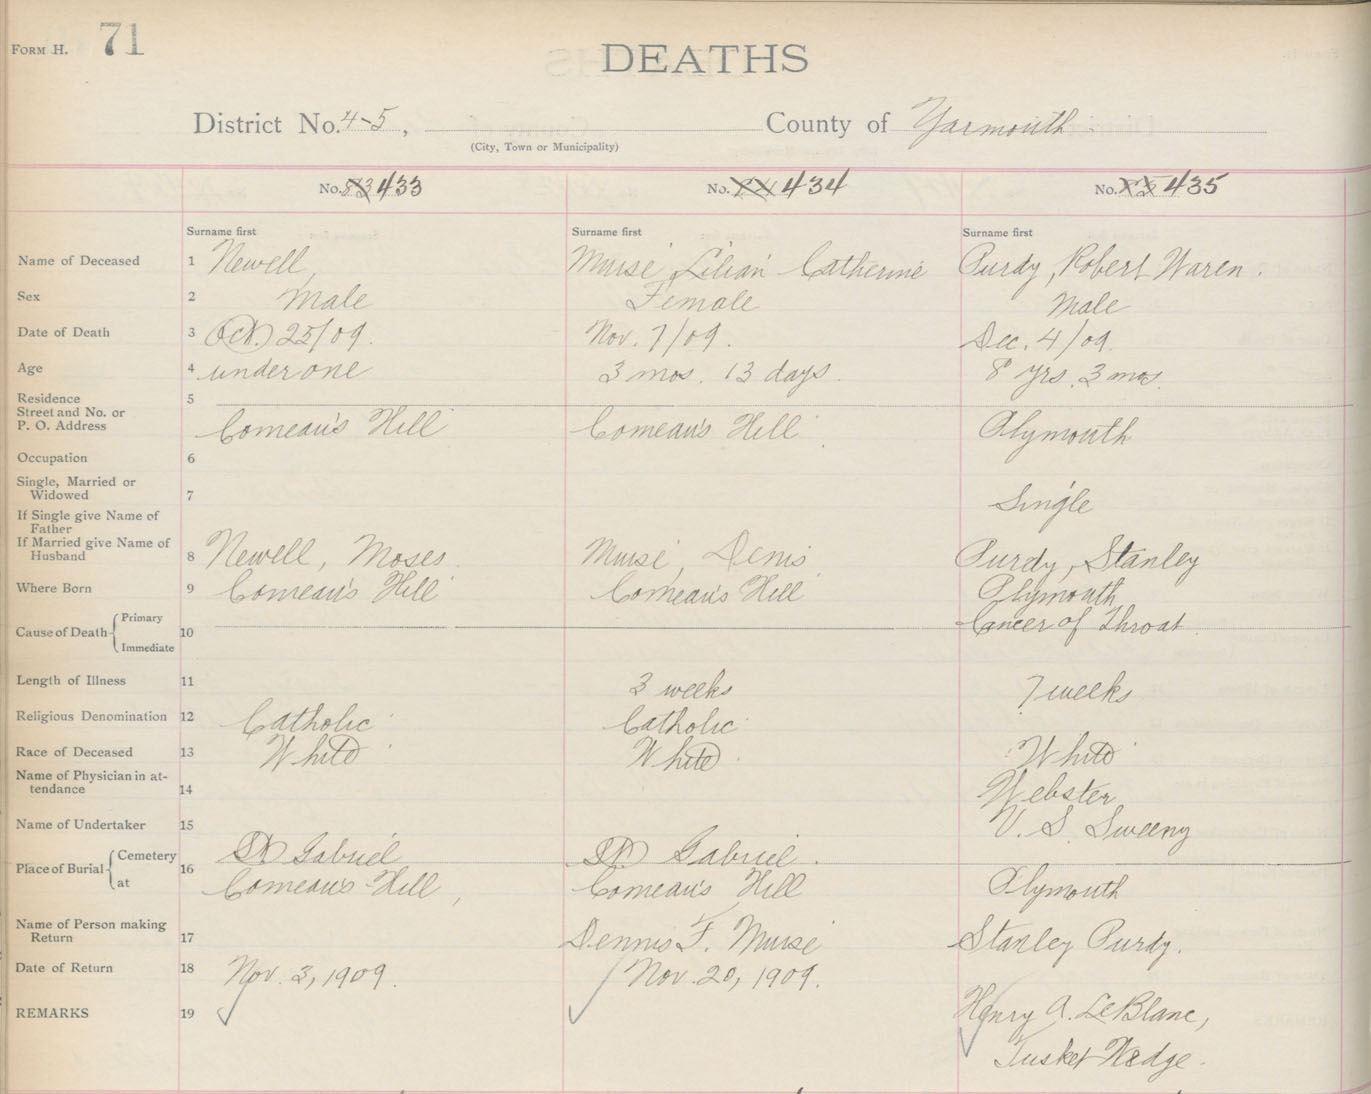 FORM H. 71
DEATHS
District No. 4-5, County of Yarmouth
(City, Town or Municipality)
No. 433 No. 434 No. 435
Surname first Surname first Surname first
Name of Deceased 1 Newell, Muise Lilian Catherine Purdy, Robert Waren.
Sex 2 Male Female Male
Date of Death 3 Oct. 25/09. Nov. 7/09. Dec. 4/09.
Age 4 under one 3 mos. 13 days. 8 yrs. 3 mos.
Residence 5
Street and No. or
P. O. Address Comeau's Hill Comeau's Hill Plymouth
Occupation 6
Single, Married or
Widowed 7 Single
If Single give Name of
Father
If Married give Name of
Husband 8 Newell, Moses. Muise, Denis Purdy, Stanley
Where Born 9 Comeau's Hill Comeau's Hill Plymouth
Cause of Death Primary 10 Cancer of Throat.
Immediate
Length of Illness 11 3 weeks 7 weeks
Religious Denomination 12 Catholic Catholic
Race of Deceased 13 White White White
Name of Physician in at-
tendance 14 Webster
Name of Undertaker 15 V. S. Sweeny
Place of Burial Cemetery 16 St. Gabriel St. Gabriel.
at Comeau's Hill, Comeau's Hill Plymouth
Name of Person making
Return 17 Dennis F. Muise Stanley Purdy.
Date of Return 18 Nov. 3, 1909. Nov. 20, 1909.
REMARKS 19 Henry A. LeBlanc,
Tusket Wedge.